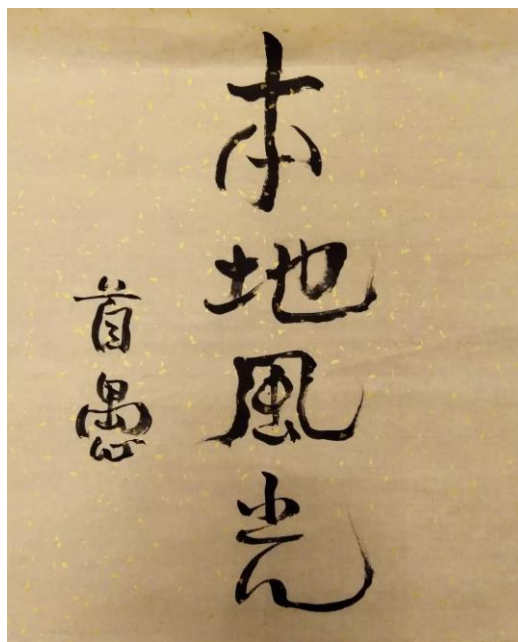 本地風光
首愚